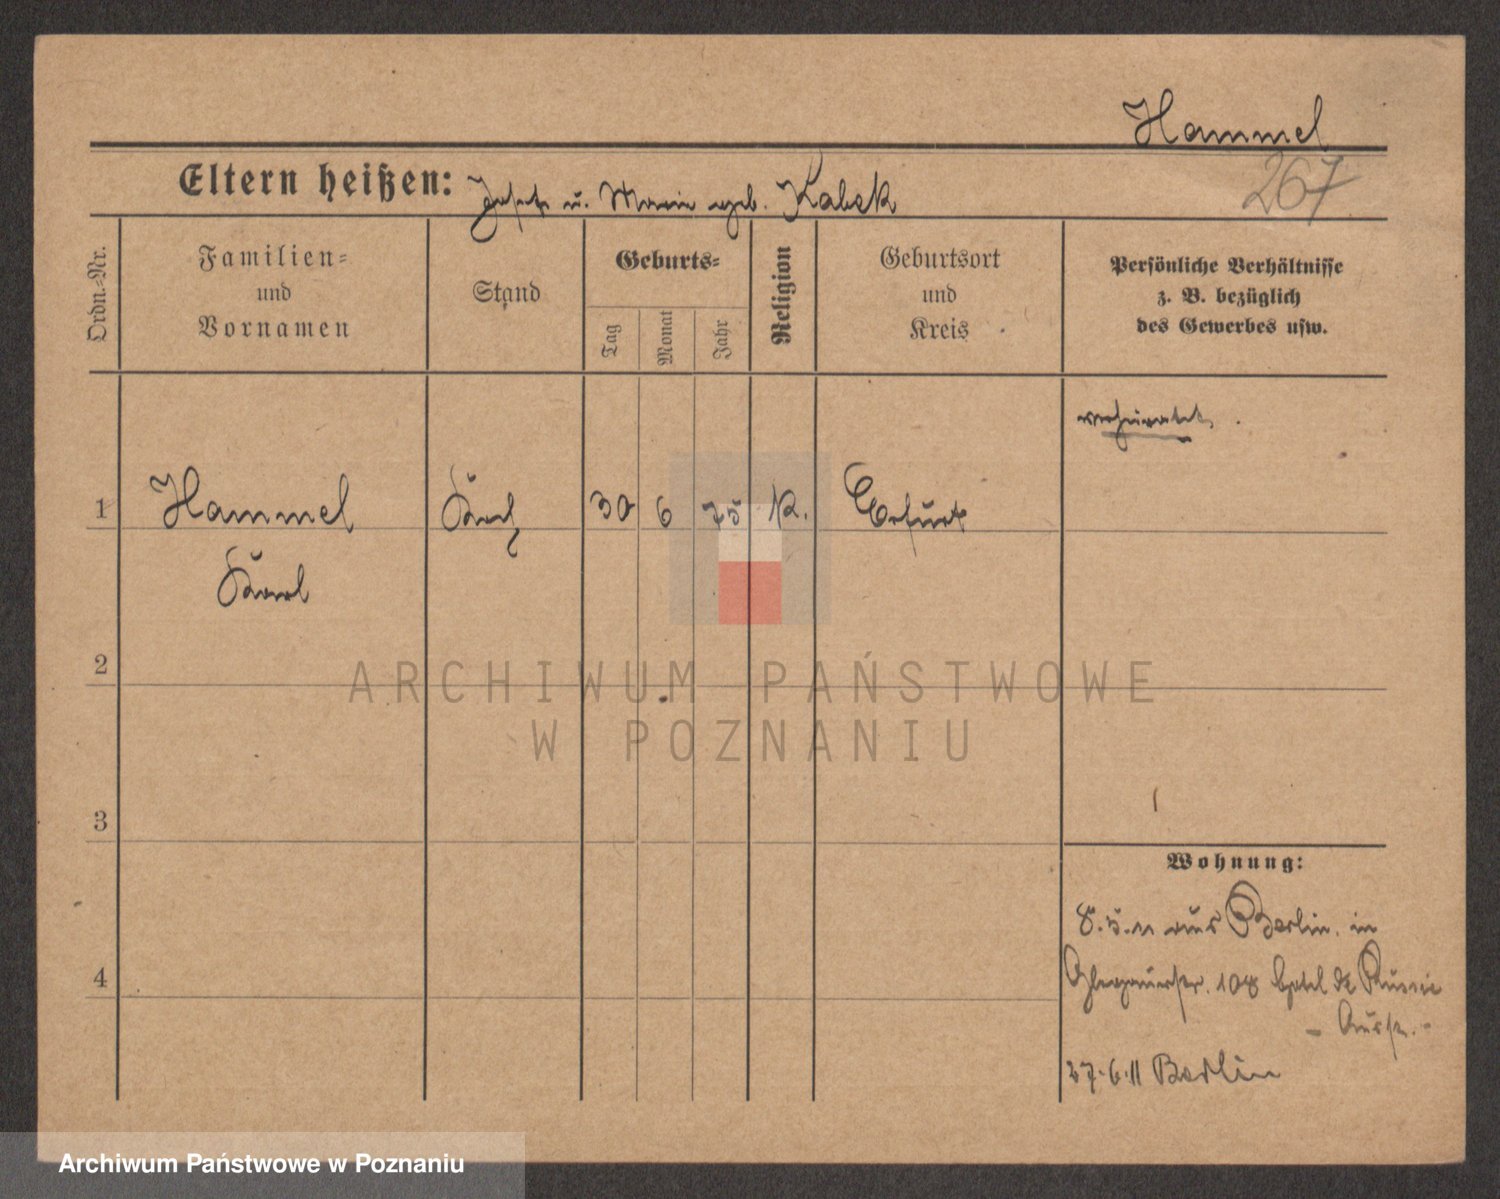 Hammel
267
Eltern heißen: Josef u. Marie geb. Kabek
Ordn.-Nr.
Familien-
und
Vornamen
Stand
Geburts-
Tag
Monat
Jahr
Religion
Geburtsort
und
Kreis
Persönliche Verhältnisse
z. B. bezüglich
des Gewerbes usw.
verheiratet.
1 Hammel Koch 30 6 75 K. Erfurt
Karl
2
3
4
Wohnung:
8.5.11 aus Berlin in
Glogauerstr. 108 Hotel de Russie
27.6.11 Berlin
ARCHIWUM PAŃSTWOWE
W POZNANIU
Archiwum Państwowe w Poznaniu